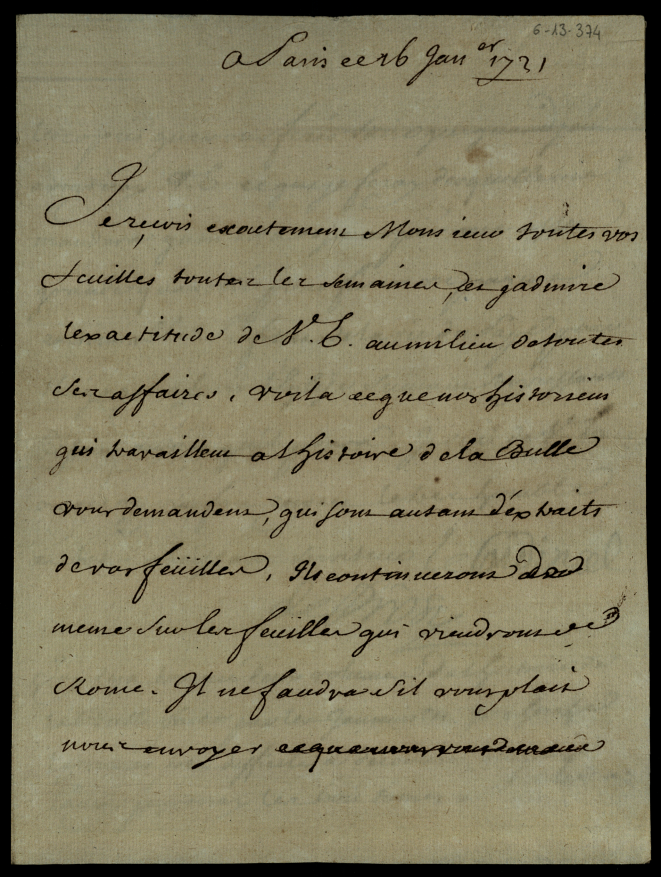 6-13-374
A Paris ce 26 Janer 1721
Je reçois exactement Monsieur toutes vos
feuilles toutes les semaines, et jadmire
lexactitude de V. E. au milieu de toutes
ses affaires. voila ce que nos historiens
qui travaillent a lhistoire de la Bulle
vous demandent, qui sont autant d'extraits
de vos feüilles. Ils continueront de
meme sur les feuilles qui viendront de
Rome. Il ne faudra s'il vous plait
nous envoyer